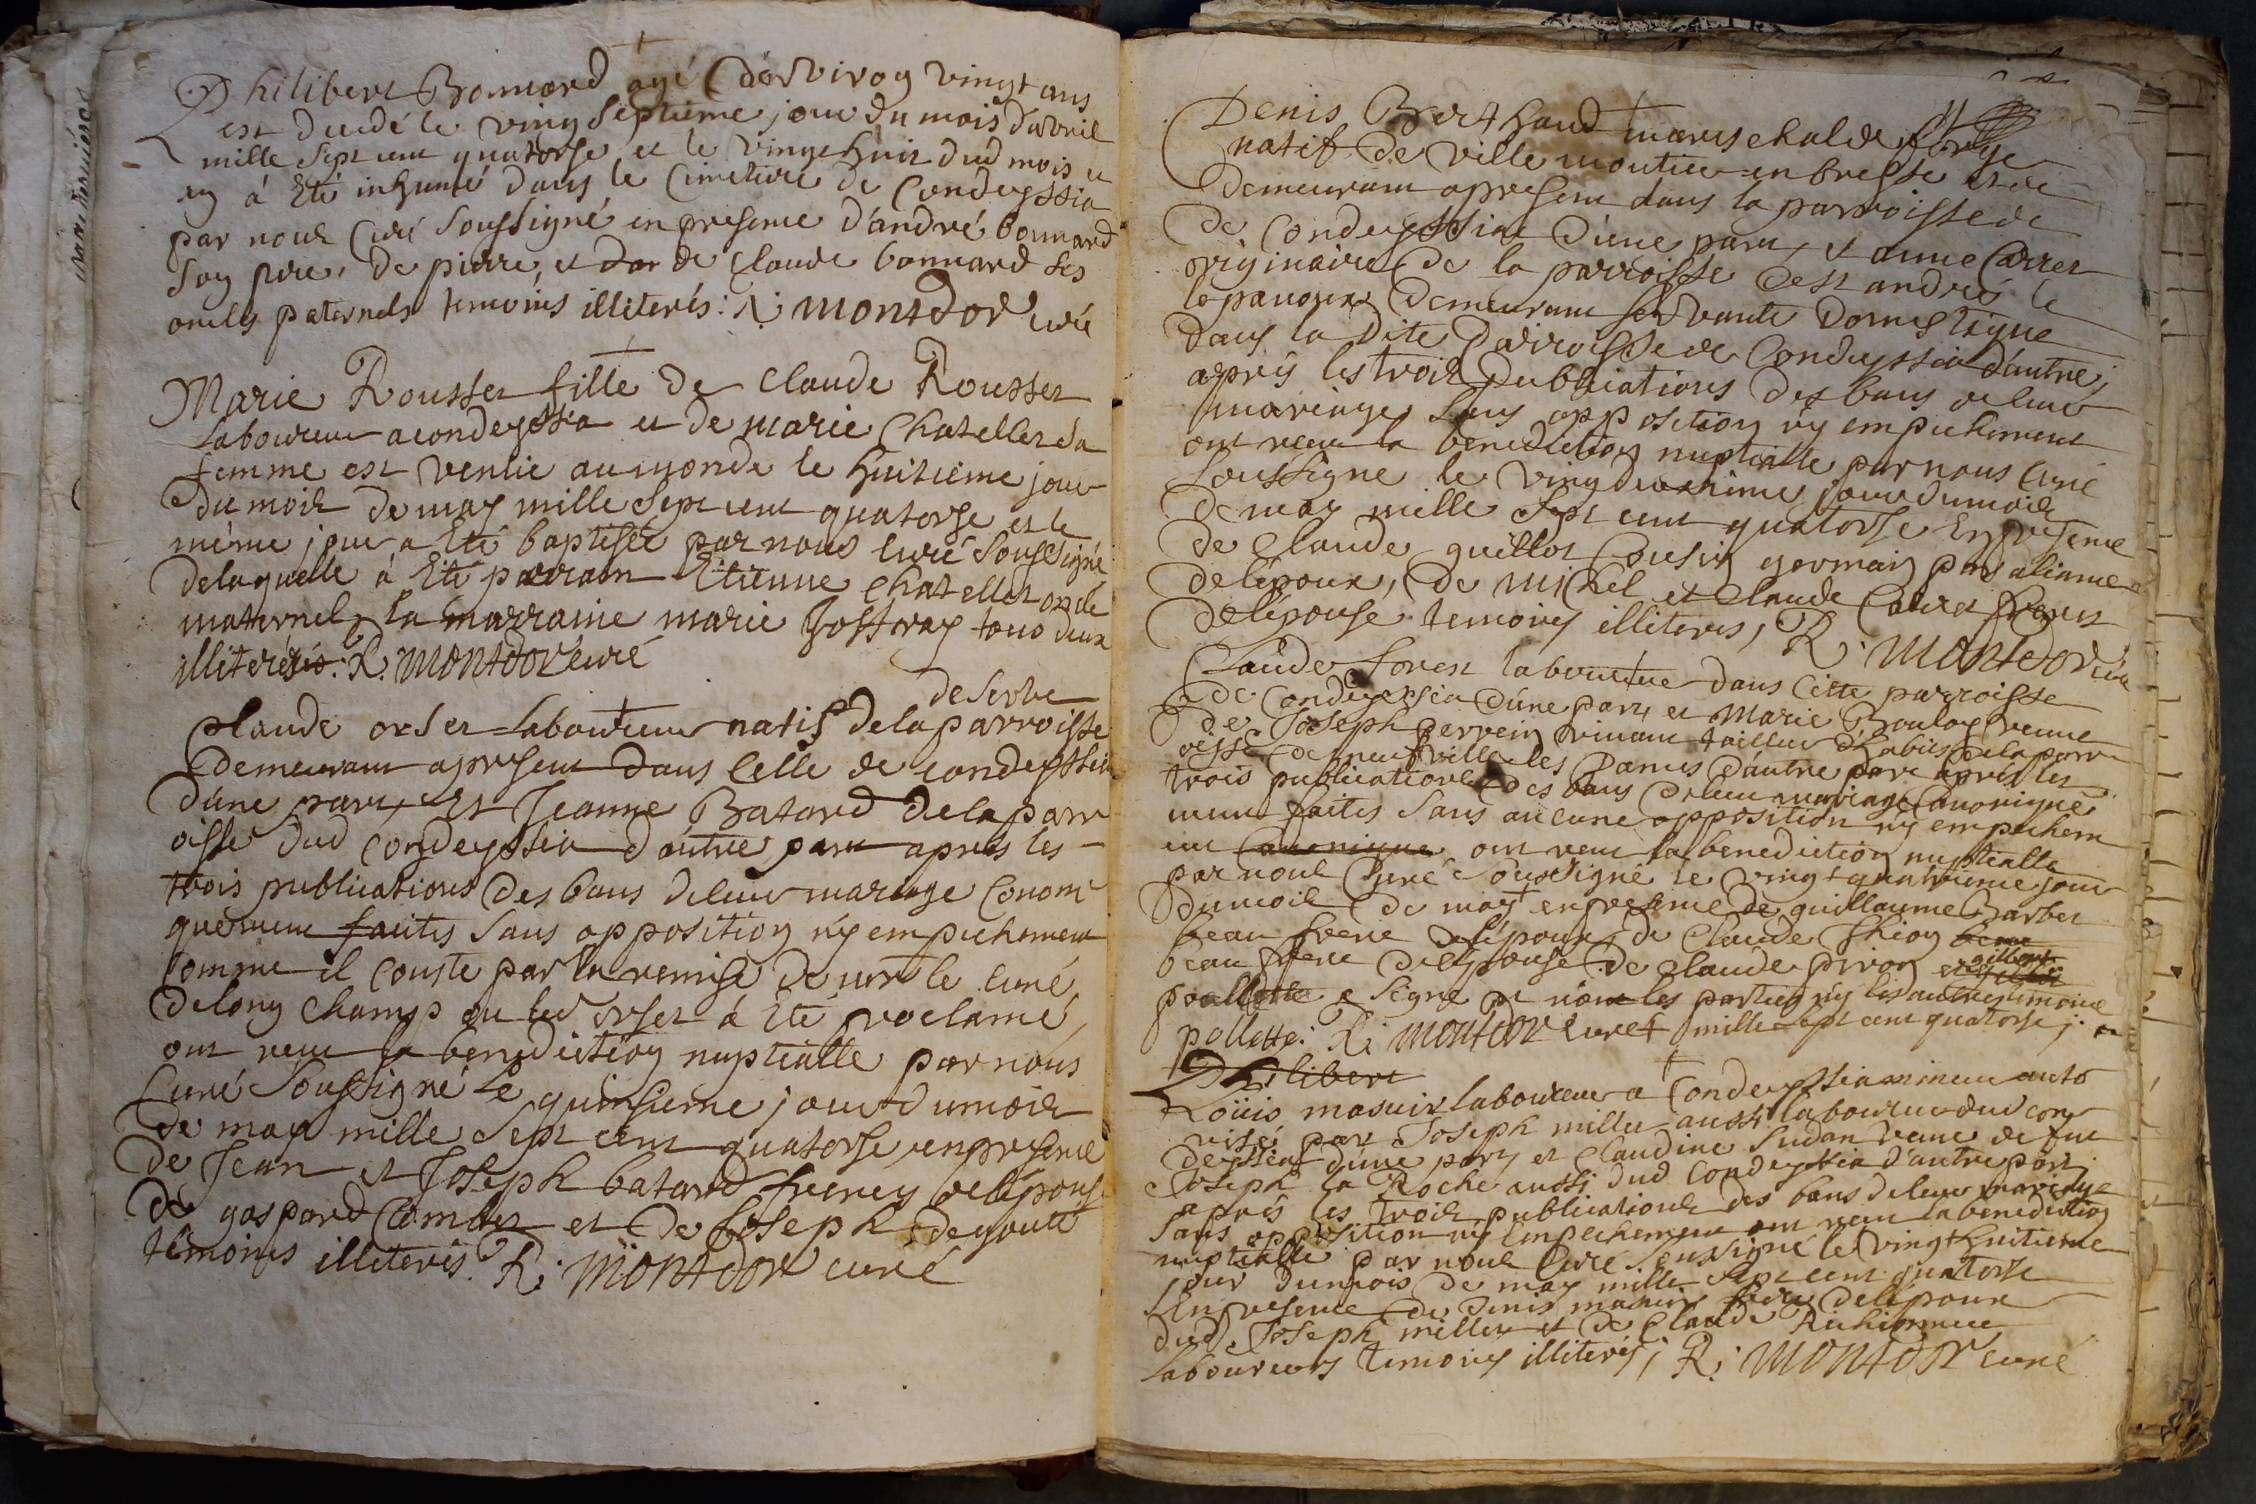 Philibert Bonnard agé d'environ vingt ans
est decedé le vingt septieme jour du mois d'avril
mille sept cent quatorse et le vingt huit dud mois et
an à Eté inhumé dans le Cimetiere de Condeyssia
par nous Curé soussigné en presence d'andré bonnard
son pere, de pierre, et de Claude bonnard ses
oncles paternels temoins illiterés: R: montdor curé
Marie Rousset fille de Claude Rousset
laboureur a condeyssia et de marie Chatellet sa
femme est venüe au monde le huitieme jour
du mois de may mille sept cent quatorse et le
même jour a Eté baptisée par nous curé soussigné
de laquelle à Eté parrain Etienne Chatellet oncle
maternel, la marraine marie Joffray tous deux
illiterés: R: montdor curé
de servе
Claude orset laboureur natif de la parroisse
demeurant apresent dans Celle de condeyssia
d'une part, et Jeanne Batard de la parr
oisse dud Condeyssia d'autre part apres les
trois publications des bans de leur mariage Canoni
quement faites sans opposition n'y empechement
comme il Conste par la remise de mr le curé
de long Champ ou led orset à Eté proclamé,
ont receu la benediction nuptialle par nous
Curé soussigné le quinsieme jour du mois
de may mille sept cent quatorse en presence
de Jean et Joseph batard freres de l'épouse
de gaspard et de Joseph degoutte
temoins illiterés. R: montdor curé
Denis Berthaud mareschal de forge
natif de ville moutier en bresse et de
demeurant apresent dans la parroisse de
de Condeyssiat d'une part, et anne Carret
originaire de la parroisse de st andré le
le panoux demeurant servante domestique
dans la dite parroisse de Condeyssia d'autre,
aprés les trois publications des bans de leur
mariage, sans opposition n'y empechement
ont receu la benediction nuptialle par nous Curé
soussigné le vingt deuxieme jour du mois
de may mille sept cent quatorse En presence
de Claude guillot Cousin germain par aliance
de l'époux, de michel et Claude Carret freres
de l'épouse temoins illiterés, R: montdor curé
Claude foret laboureur dans Cette parroisse
de Condeyssia d'une part, et Marie Boulay veuve
de Joseph perrein vivant tailleur d'habits de la parr
oisse de neufville les Dames d'autre part aprés les
trois publications des bans de leur mariage Canonique
ment faites sans aucune opposition n'y empechem
ent Canonique, ont receu la benediction nuptialle
par nous Curé soussigné le vingt quatrieme jour
du mois de may en presence de guillaume Barbet
beau frere de l'époux, de Claude
beau frere de l'épouse de Claude pivon
a signé et non les parties n'y les autres temoins
pollette: R: montdor curé mille sept cent quatorse
Philibert
Loüis masuir laboureur a Condeyssia mineur auto
risé par Joseph millet aussi laboureur dud con
deyssiat d'une part, et Claudine sudan veuve de feu
Joseph la Roche aussi dud Condeyssia d'autre part
aprés les trois publications des bans de leur mariage
sans opposition n'y Empechement ont receu la benediction
nuptialle par nous Curé soussigné le vingt huitieme
jour du mois de may mille sept cent quatorse
En presence de denis masuir frere de l'époux
dud Joseph millet et de Claude
laboureurs temoins illiterés, R: montdor curé